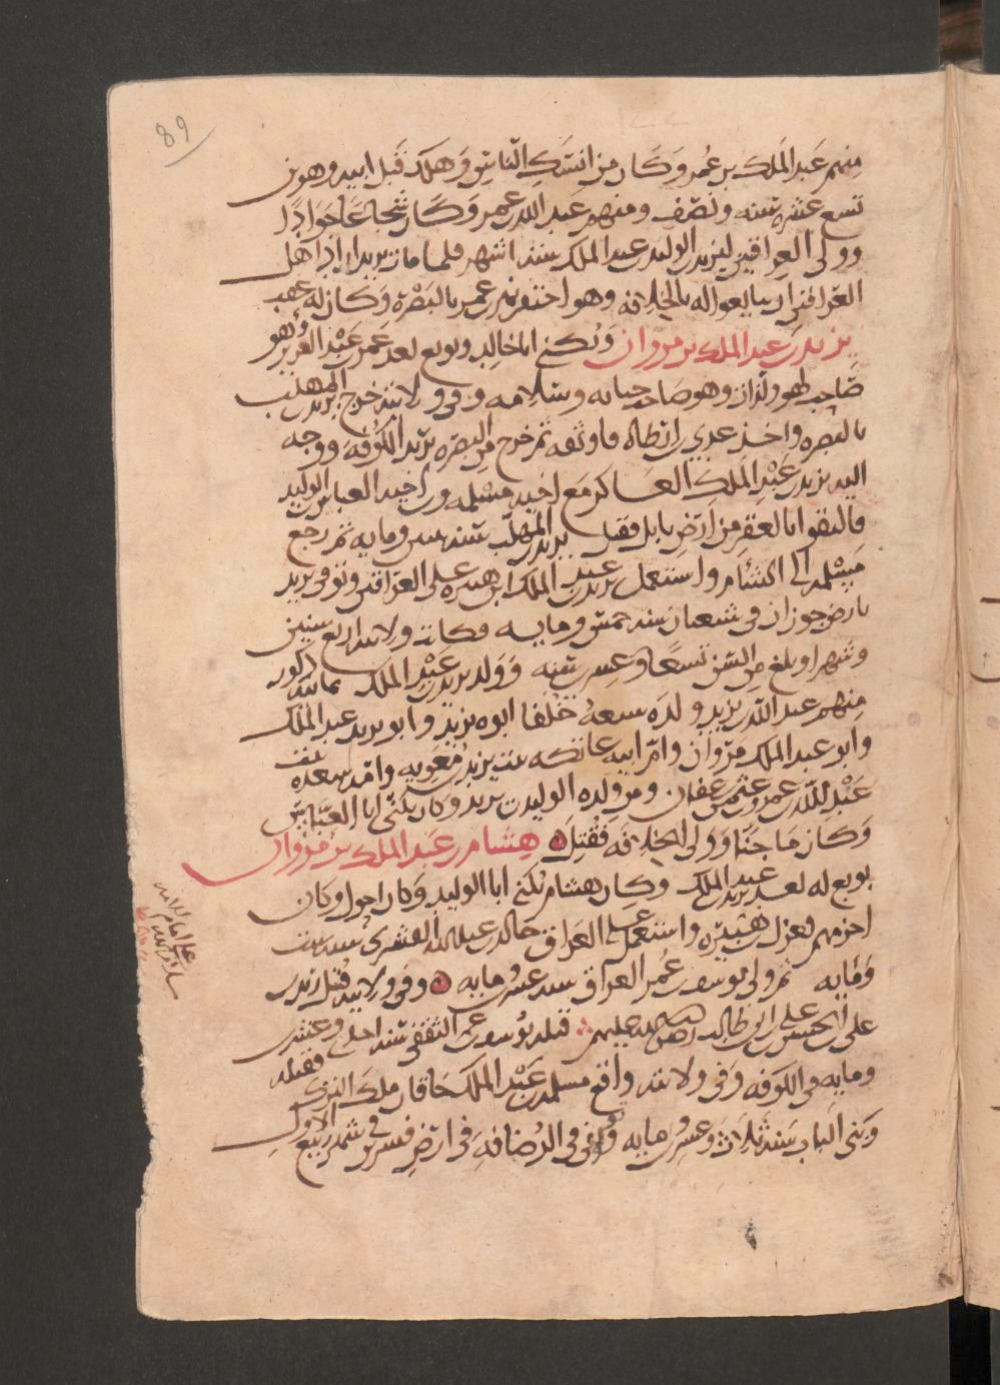 89
منهم عبد الملك بن عمر وكان من انسك الناس وهلك قبل ابيه وهو بن
تسع عشره سنه ونصف ومنهم عبد الله بن عمر وكان شجاعا جوادا
وولى العراقين ليزيد بن الوليد بن عبد الملك ستة اشهر فلما مات يزيد اراد اهل
العراقين ان يبايعوا له بالخلافه وهو احتفر نهر عمر بالبصره وكان له عقب
يزيد بن عبد الملك بن مروان ويكنى ابا خالد وبويع بعد عمر بن عبد العزيز وهو
صاحب لهو ولذات وهو صاحب حبابه وسلامه وفي ولايته خرج يزيد بن المهلب
بالبصره واخذ عدي بن ارطاه فاوثقه ثم خرج من البصره يريد الكوفه ووجه
اليه يزيد بن عبد الملك العساكر مع اخيه مسلمه وبن اخيه العباس بن الوليد
فالتقوا بالعقر من ارض بابل فقتل يزيد بن المهلب سنة ومايه ثم رجع
مسلمه الى الشام واستعمل يزيد بن عبد الملك ابن هبيره على العراقين وتوفي يزيد
بارض حوران في شعبان سنة خمس ومايه وكانت ولايته اربع سنين
وشهرا وبلغ من السن تسعا وعشرين سنه وولد يزيد بن عبد الملك ثمانية ذكور
منهم عبد الله بن يزيد ولده سبعه خلفا ابوه يزيد وابو يزيد عبد الملك
وابو عبد الملك مروان وام ابيه عاتكه بنت يزيد بن معويه وامه سعده بنت
عبد الله بن عمرو بن عثمن بن عفان ومن ولده الوليد بن يزيد وكان يكنى ابا العباس
وكان ماجنا وولى الخلافه فقتل هشام بن عبد الملك بن مروان
بويع له بعد يزيد بن عبد الملك وكان هشام يكنى ابا الوليد وكان احول وكان
احزمهم فعزل بن هبيره واستعمل على العراق خالد بن عبد الله القسري سنة ست
ومايه ثم ولى يوسف بن عمر العراق سنة عشرين ومايه وفي ولايته قتل زيد بن
علي بن الحسين بن علي بن ابي طالب عليهم قتله يوسف بن عمر الثقفي سنة احدى وعشرين
ومايه في الكوفه وفي ولايته واقع مسلمه بن عبد الملك خاقان ملك الترك فقتله
وبنى الباب سنة ثلاث وعشرين ومايه وتوفي في الرصافه في ارض قنسرين في شهر ربيع الاول